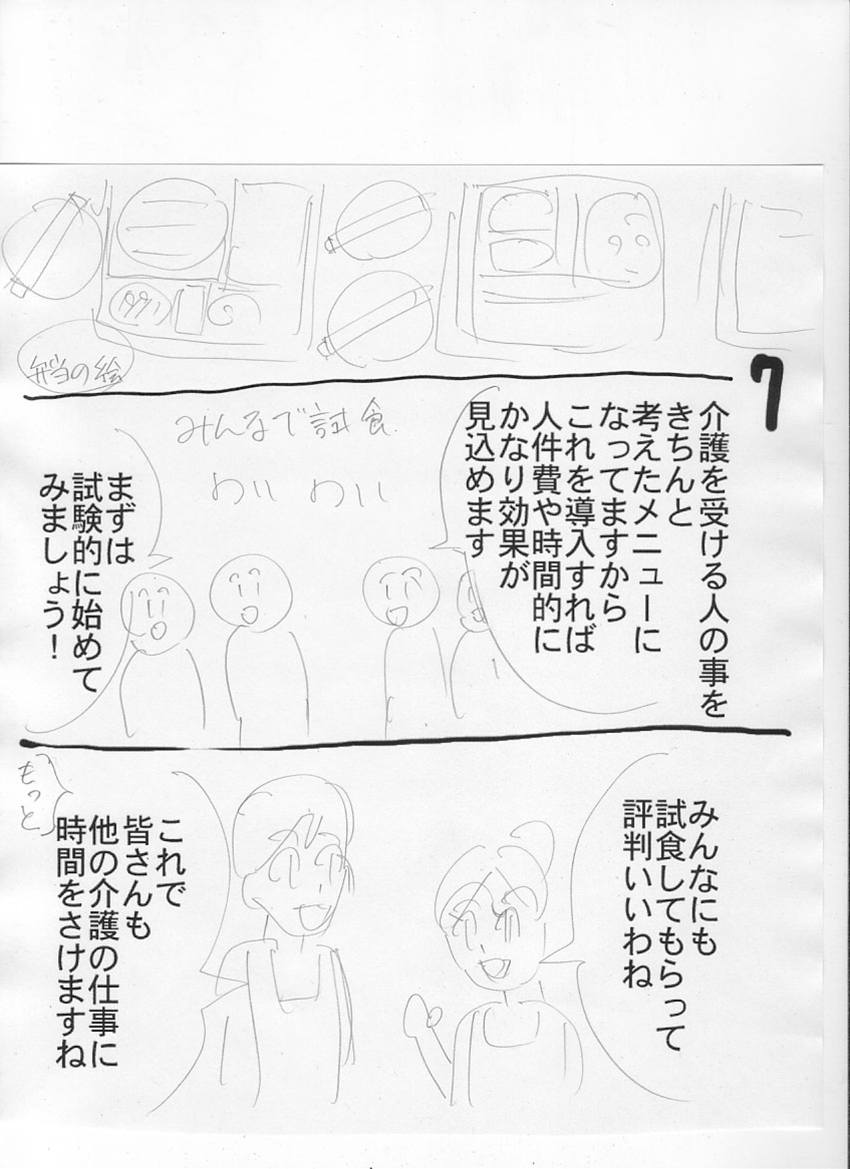 弁当の絵
7
介護を受ける人の事を
きちんと
考えたメニューに
なってますから
これを導入すれば
人件費や時間的に
かなり効果が
見込めます
みんなで試食
わいわい
まずは
試験的に始めて
みましょう！
みんなにも
試食してもらって
評判いいわね
これで
皆さんも
他の介護の仕事に
時間をさけますね
もっと